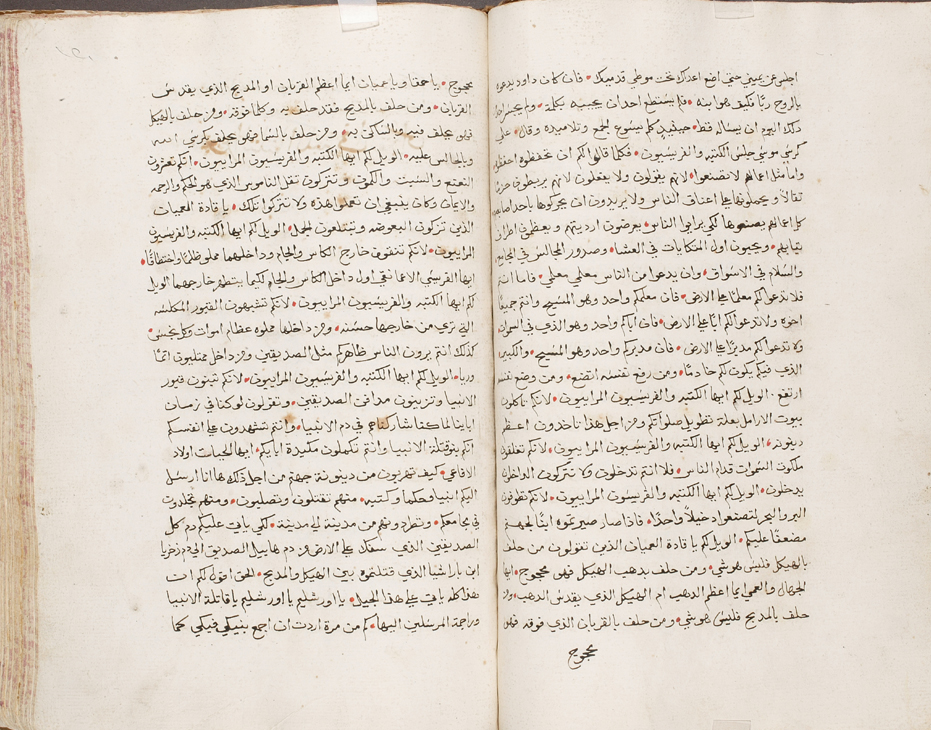 اجلس عن يميني حتي اضع اعداك تحت موطي قدميك • فان كان داود يدعوه
بالروح ربًا فكيف هو ابنه • فلم يستطع احد ان يجيبه بكلمة • ولم يجسر احد
ذلك اليوم ان يساله قط • حينيذ كلم يسوع الجمع وتلاميذه وقال • علي
كرسي موسي جلس الكتبه والفريسيون • فكلما قالوا لكم ان تحفظوه احفظوه
واما مثل اعمالهم لا تصنعوا • لانهم يقولون ولا يفعلون لانهم يربطون حزمًا
ثقالًا ويحملونها علي اعناق الناس ولا يريدون ان يحركوها باحد اصابعهم
كل اعمالهم يصنعوها لكي يراءوا الناس • يعرضون ارديتهم ويعظمون اطراف
ثيابهم • ويحبون اول المتكايات في العشا • وصدور المجالس في المجامع
والسلام في الاسواق • وان يدعوا من الناس معلمي معلمي • فاما انتم
فلا تدعوا لكم معلمًا علي الارض • فان معلمكم واحد وهو المسيح وانتم جميعًا
اخوه ولا تدعوا لكم ابًا علي الارض • فان اباكم واحد وهو الذي في السموات
ولا تدعوا لكم مدبرًا علي الارض • فان مدبركم واحد وهو المسيح • والكبير
الذي فيكم يكون لكم خادمًا • ومن رفع نفسه اتضع • ومن وضع نفسه
ارتفع • الويل لكم ايها الكتبه والفريسيون المرايبون • لانكم تاكلون
بيوت الارامل بعلة تطويل صلواتكم ومن اجل هذا تاخذون اعظم
دينونه • الويل لكم ايها الكتبه والفريسيون المرايبون • لانكم تغلقون
ملكوت السموات قدام الناس • فلا انتم تدخلون ولا تتركون الداخلين
يدخلون • الويل لكم ايها الكتبه والفريسيون المرايبون • لانكم تطوفون
البر والبحر لتصنعوا دخيلًا واحدًا • فاذا صار صيرتموه ابنًا لجهنم
مضعفًا عليكم • الويل لكم يا قادة العميان الذين تقولون من حلف
بالهيكل فليس هو شي • ومن حلف بذهب الهيكل فهو محجوج • ايها
الجهال والعمي ايما اعظم الذهب ام الهيكل الذي يقدس الذهب • ومن
حلف بالمدبح فليس هو شي • ومن حلف بالقربان الذي فوقه فهو
محجوج
محجوج • يا حمقا ويا عميان ايما اعظم القربان او المدبح الذي يقدس
القربان • ومن حلف بالمدبح فقد حلف به وكلما فوقه • ومن حلف بالهيكل
فهو يحلف فيه وبالساكن به • ومن حلف بالسما فهو يحلف بكرسي الله
وبالجالس عليه • الويل لكم ايها الكتبه والفريسيون المرايبون • انكم تعشرون
النعنع والسبت والكمون وتتركون ثقل الناموس الذي هو الحكم والرحمه
والايمان وكان ينبغي ان تعملوا هذه ولا تتركوا تلك • يا قادة العميان
الذين تزكون البعوضه وتبتلعون الجمل • الويل لكم ايها الكتبه والفريسيون
المرايبون • لانكم تنقون خارج الكاس والجام وداخلهما مملو ظلمًا واختطافًا •
ايها الفريسي الاعما نقي اول داخل الكاس والجام لكيما يتطهر خارجهما الويل
لكم ايها الكتبه والفريسيون المرايبون • لانكم تشبهون القبور المكلسه
التي تري من خارجها حسنه • ومن داخلها مملوه عظام اموات وكل نجس •
كذلك انتم يرون الناس ظاهركم مثل الصديقين ومن داخل ممتليون اثمًا
وريا • الويل لكم ايها الكتبه والفريسيون المرايبون • لانكم تبنون قبور
الانبيا وتزينون مدافن الصديقين • وتقولون لو كنا في زمان
اباينا لما كنا شاركناهم في دم الانبيا • وانتم تشهدون علي انفسكم
انكم بنو قتلة الانبيا وانتم تكملون مكيدة ابايكم • ايها الحيات اولاد
الافاعي • كيف تهربون من دينونة جهنم من اجل ذلك هاانا ارسل
اليكم انبيا وحكما وكتبه • منهم تقتلون وتصلبون • ومنهم تجلدون
في مجامعكم • وتطردونهم من مدينة الي مدينة • لكي ياتي عليكم دم كل
الصديقين الذي سفك علي الارض من دم هابيل الصديق الي دم زخريا
ابن باراشيا الذي قتلتموه بين الهيكل والمدبح • الحق اقول لكم ان
هذا كله ياتي علي هذا الجيل • يا اورشليم يا اورشليم يا قاتلة الانبيا
وراجمة المرسلين اليها • كم من مرة اردت ان اجمع بنيكي فيكي كما